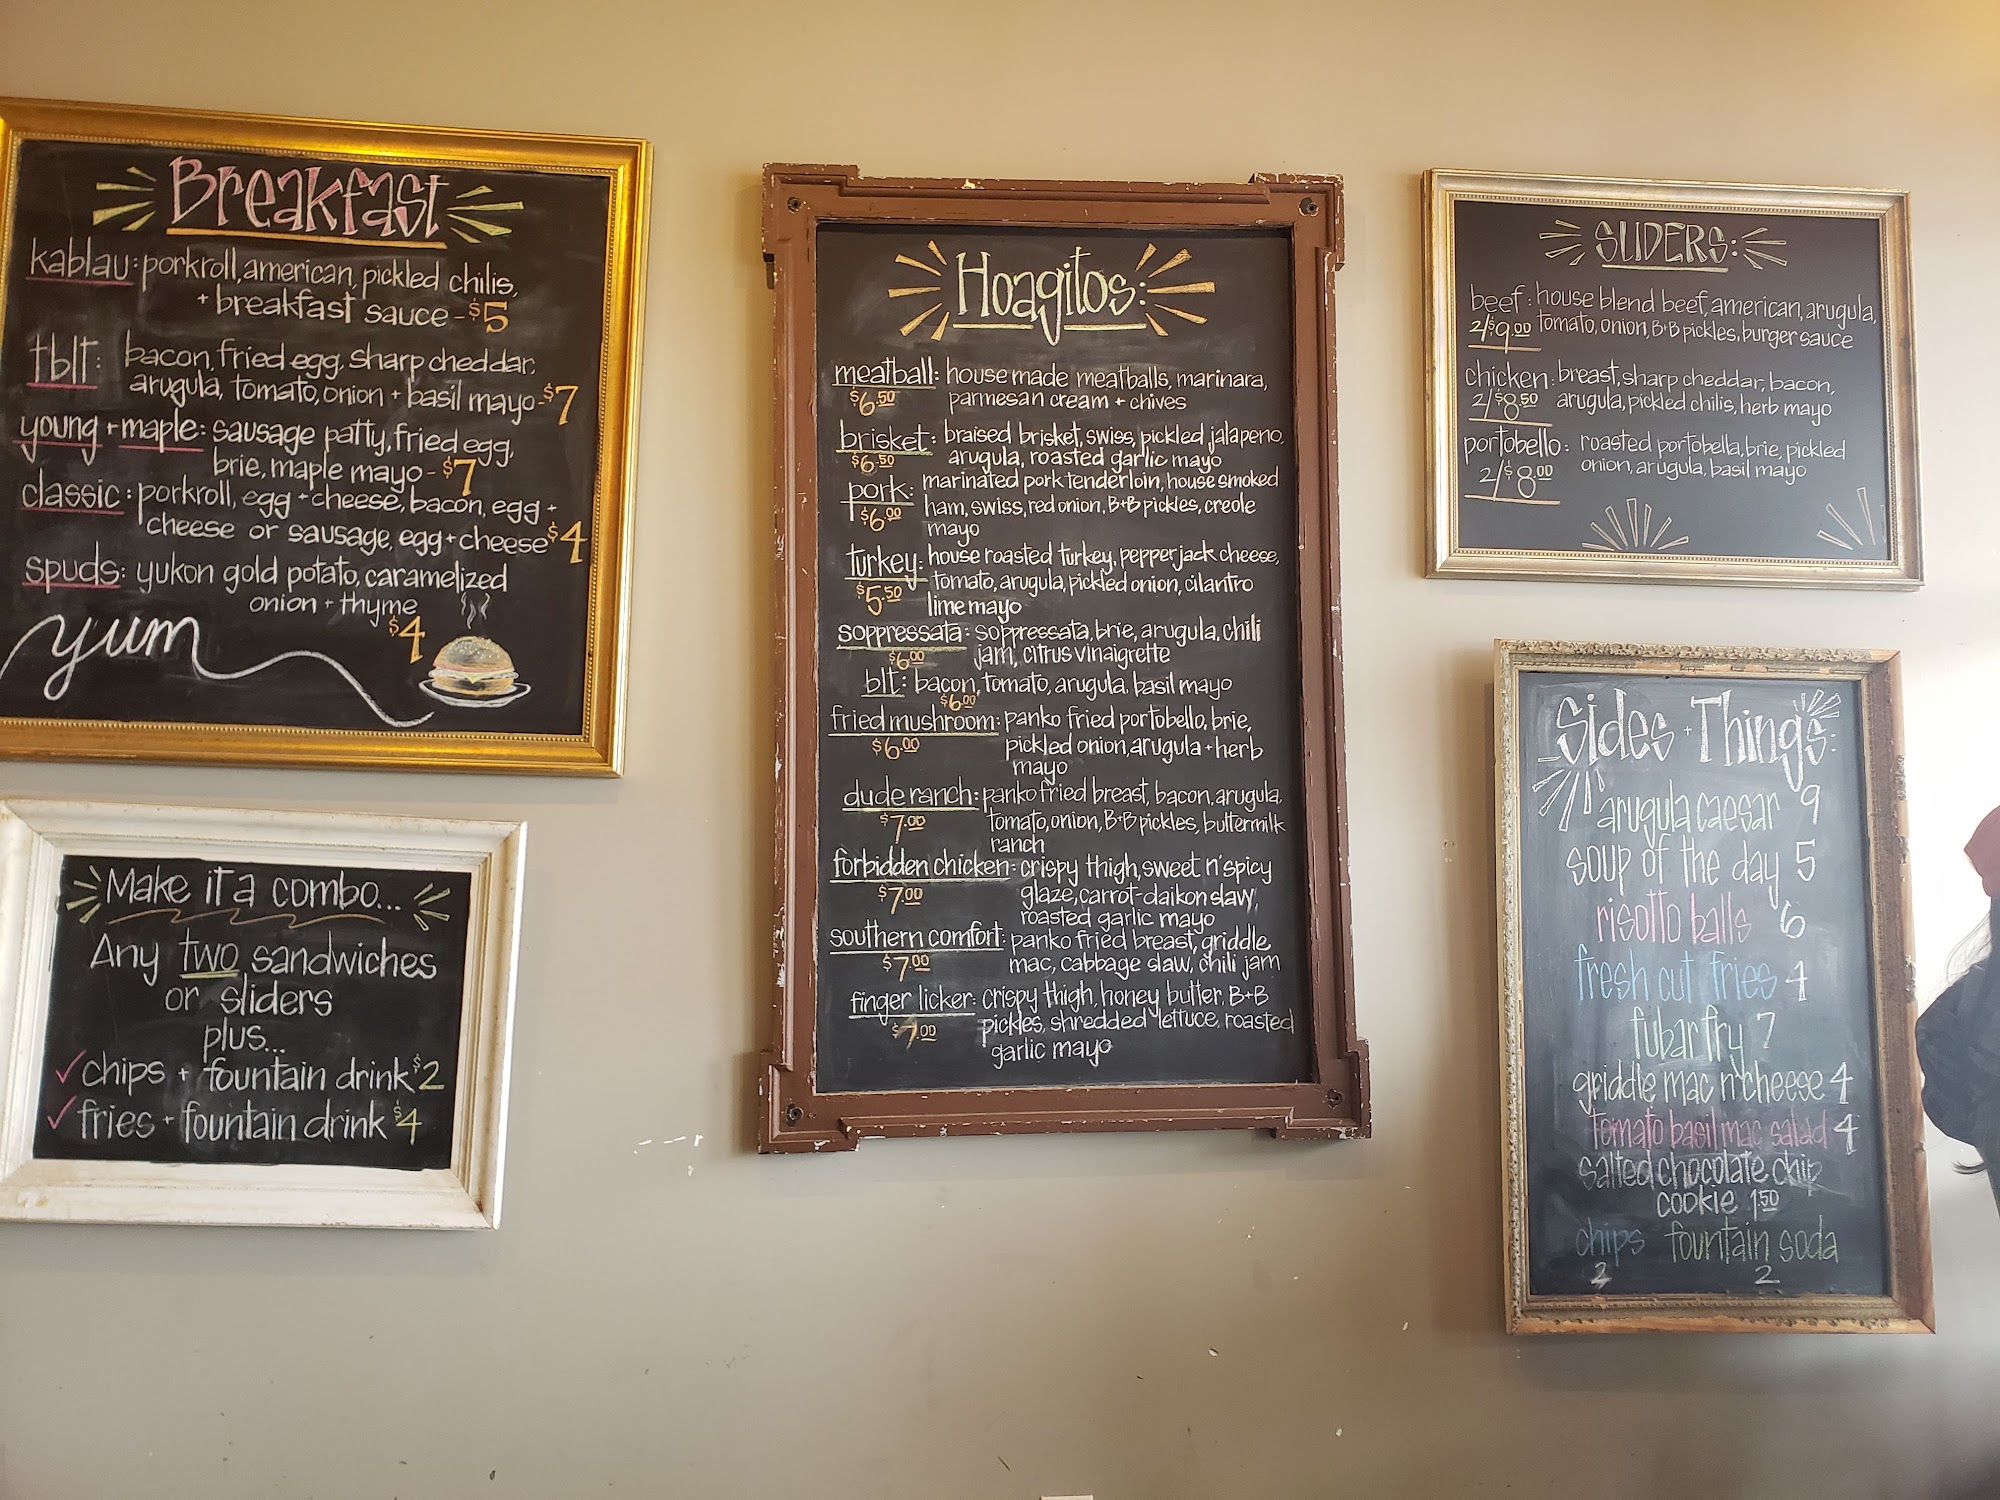 Breakfast
kablau: porkroll, american, pickled chilis,
+ breakfast sauce - $5
tblt: bacon, fried egg, sharp cheddar,
arugula, tomato, onion + basil mayo - $7
young + maple: sausage patty, fried egg,
brie, maple mayo - $7
classic: porkroll, egg + cheese, bacon, egg +
cheese or sausage, egg + cheese $4
spuds: yukon gold potato, caramelized
onion + thyme
$4
yum
Make it a combo...
Any two sandwiches
or sliders
plus...
✓ chips + fountain drink $2
✓ fries + fountain drink $4
Hoagitos:
meatball: house made meatballs, marinara,
$6.50 parmesan cream + chives
brisket: braised brisket, swiss, pickled jalapeno,
$6.50 arugula, roasted garlic mayo
pork: marinated pork tenderloin, house smoked
$6.00 ham, swiss, red onion, B+B pickles, creole
mayo
turkey: house roasted turkey, pepperjack cheese,
$5.50 tomato, arugula, pickled onion, cilantro
lime mayo
soppressata: soppressata, brie, arugula, chili
$6.00 jam, citrus vinaigrette
blt: bacon, tomato, arugula, basil mayo
$6.00
fried mushroom: panko fried portobello, brie,
$6.00 pickled onion, arugula + herb
mayo
dude ranch: panko fried breast, bacon, arugula,
$7.00 tomato, onion, B+B pickles, buttermilk
ranch
forbidden chicken: crispy thigh, sweet n' spicy
$7.00 glaze, carrot-daikon slaw,
roasted garlic mayo
southern comfort: panko fried breast, griddle
$7.00 mac, cabbage slaw, chili jam
finger licker: crispy thigh, honey butter, B+B
$7.00 pickles, shredded lettuce, roasted
garlic mayo
SLIDERS:
beef: house blend beef, american, arugula,
2/$9.00 tomato, onion, B+B pickles, burger sauce
chicken: breast, sharp cheddar, bacon,
2/$8.50 arugula, pickled chilis, herb mayo
portobello: roasted portobella, brie, pickled
2/$8.00 onion, arugula, basil mayo
Sides + Things:
arugula caesar 9
soup of the day 5
risotto balls 6
fresh cut fries 4
fubar fry 7
griddle mac n' cheese 4
tomato basil mac salad 4
salted chocolate chip
cookie 1.50
chips fountain soda
2 2